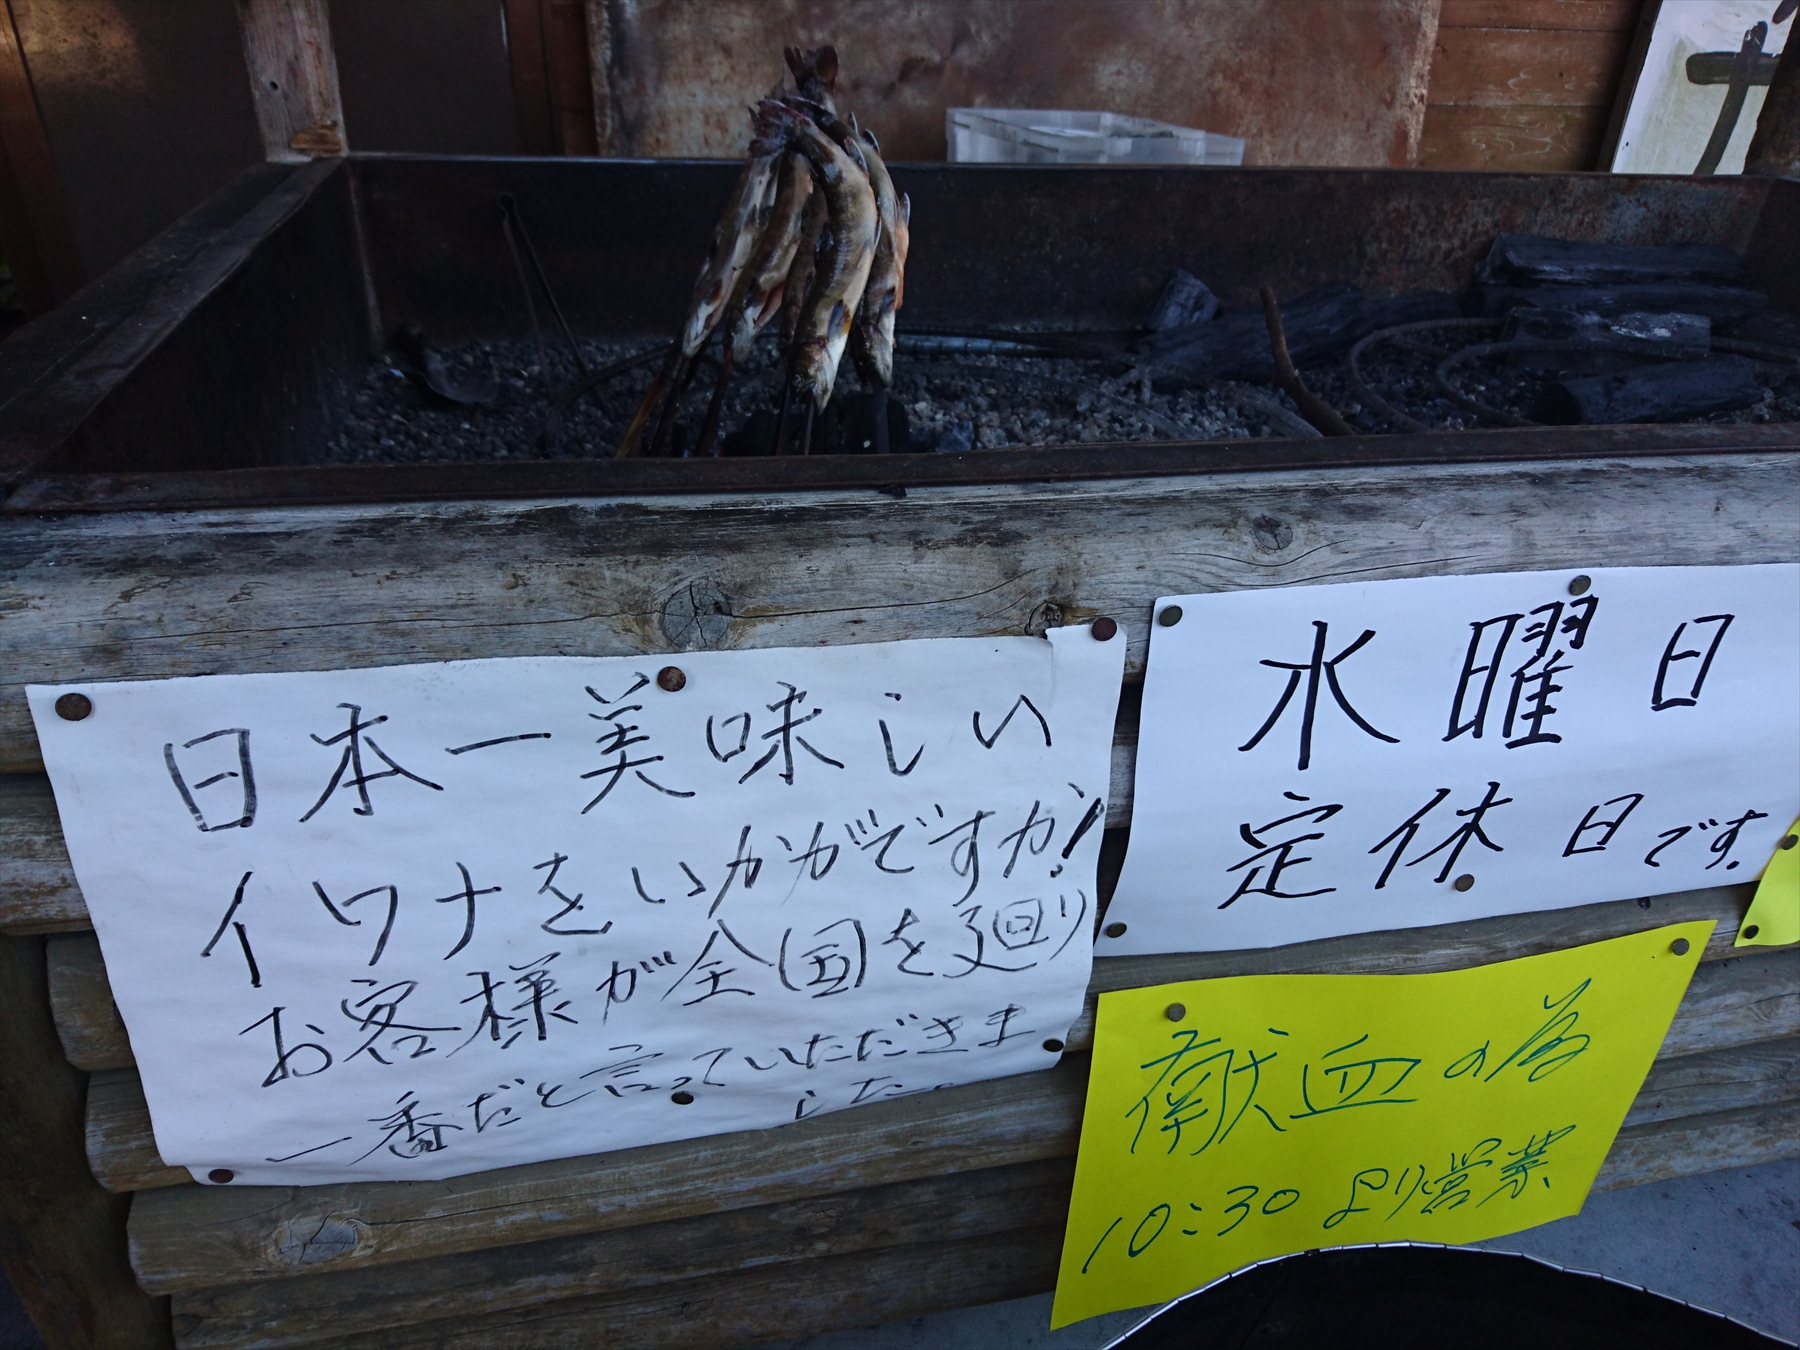 日本一美味しい
イワナをいかがですか!
お客様が全国を廻り
一番だと言っていただきま
した。
水曜日
定休日です。
献血の為
10:30より営業